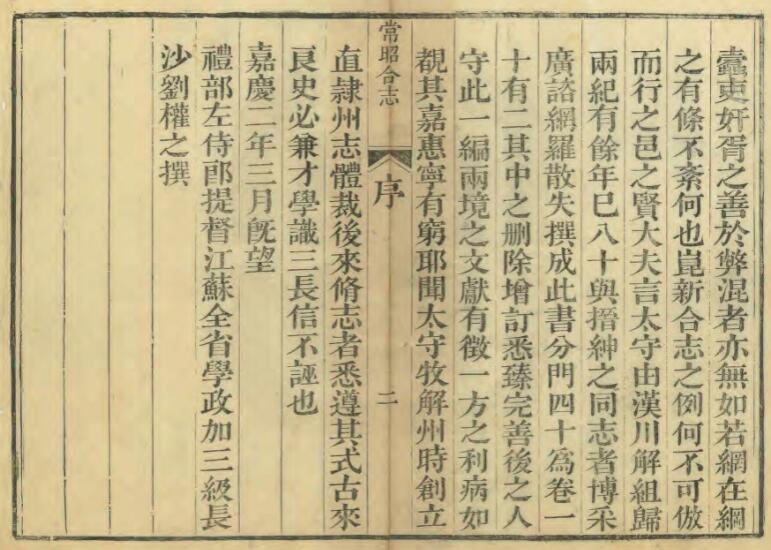 蠹吏奸胥之善於弊混者亦無如若網在綱
之有條不紊何也崑新合志之例何不可倣
而行之邑之賢大夫言太守由漢川解組歸
兩紀有餘年巳八十與搢紳之同志者博采
廣諮網羅散失撰成此書分門四十爲卷一
十有二其中之刪除增訂悉臻完善後之人
守此一編兩境之文獻有徵一方之利病如
觀其嘉惠寧有窮耶聞太守牧解州時創立
常昭合志
序
二
直隷州志體裁後來脩志者悉遵其式古來
良史必兼才學識三長信不誣也
嘉慶二年三月旣望
禮部左侍郎提督江蘇全省學政加三級長
沙劉權之撰